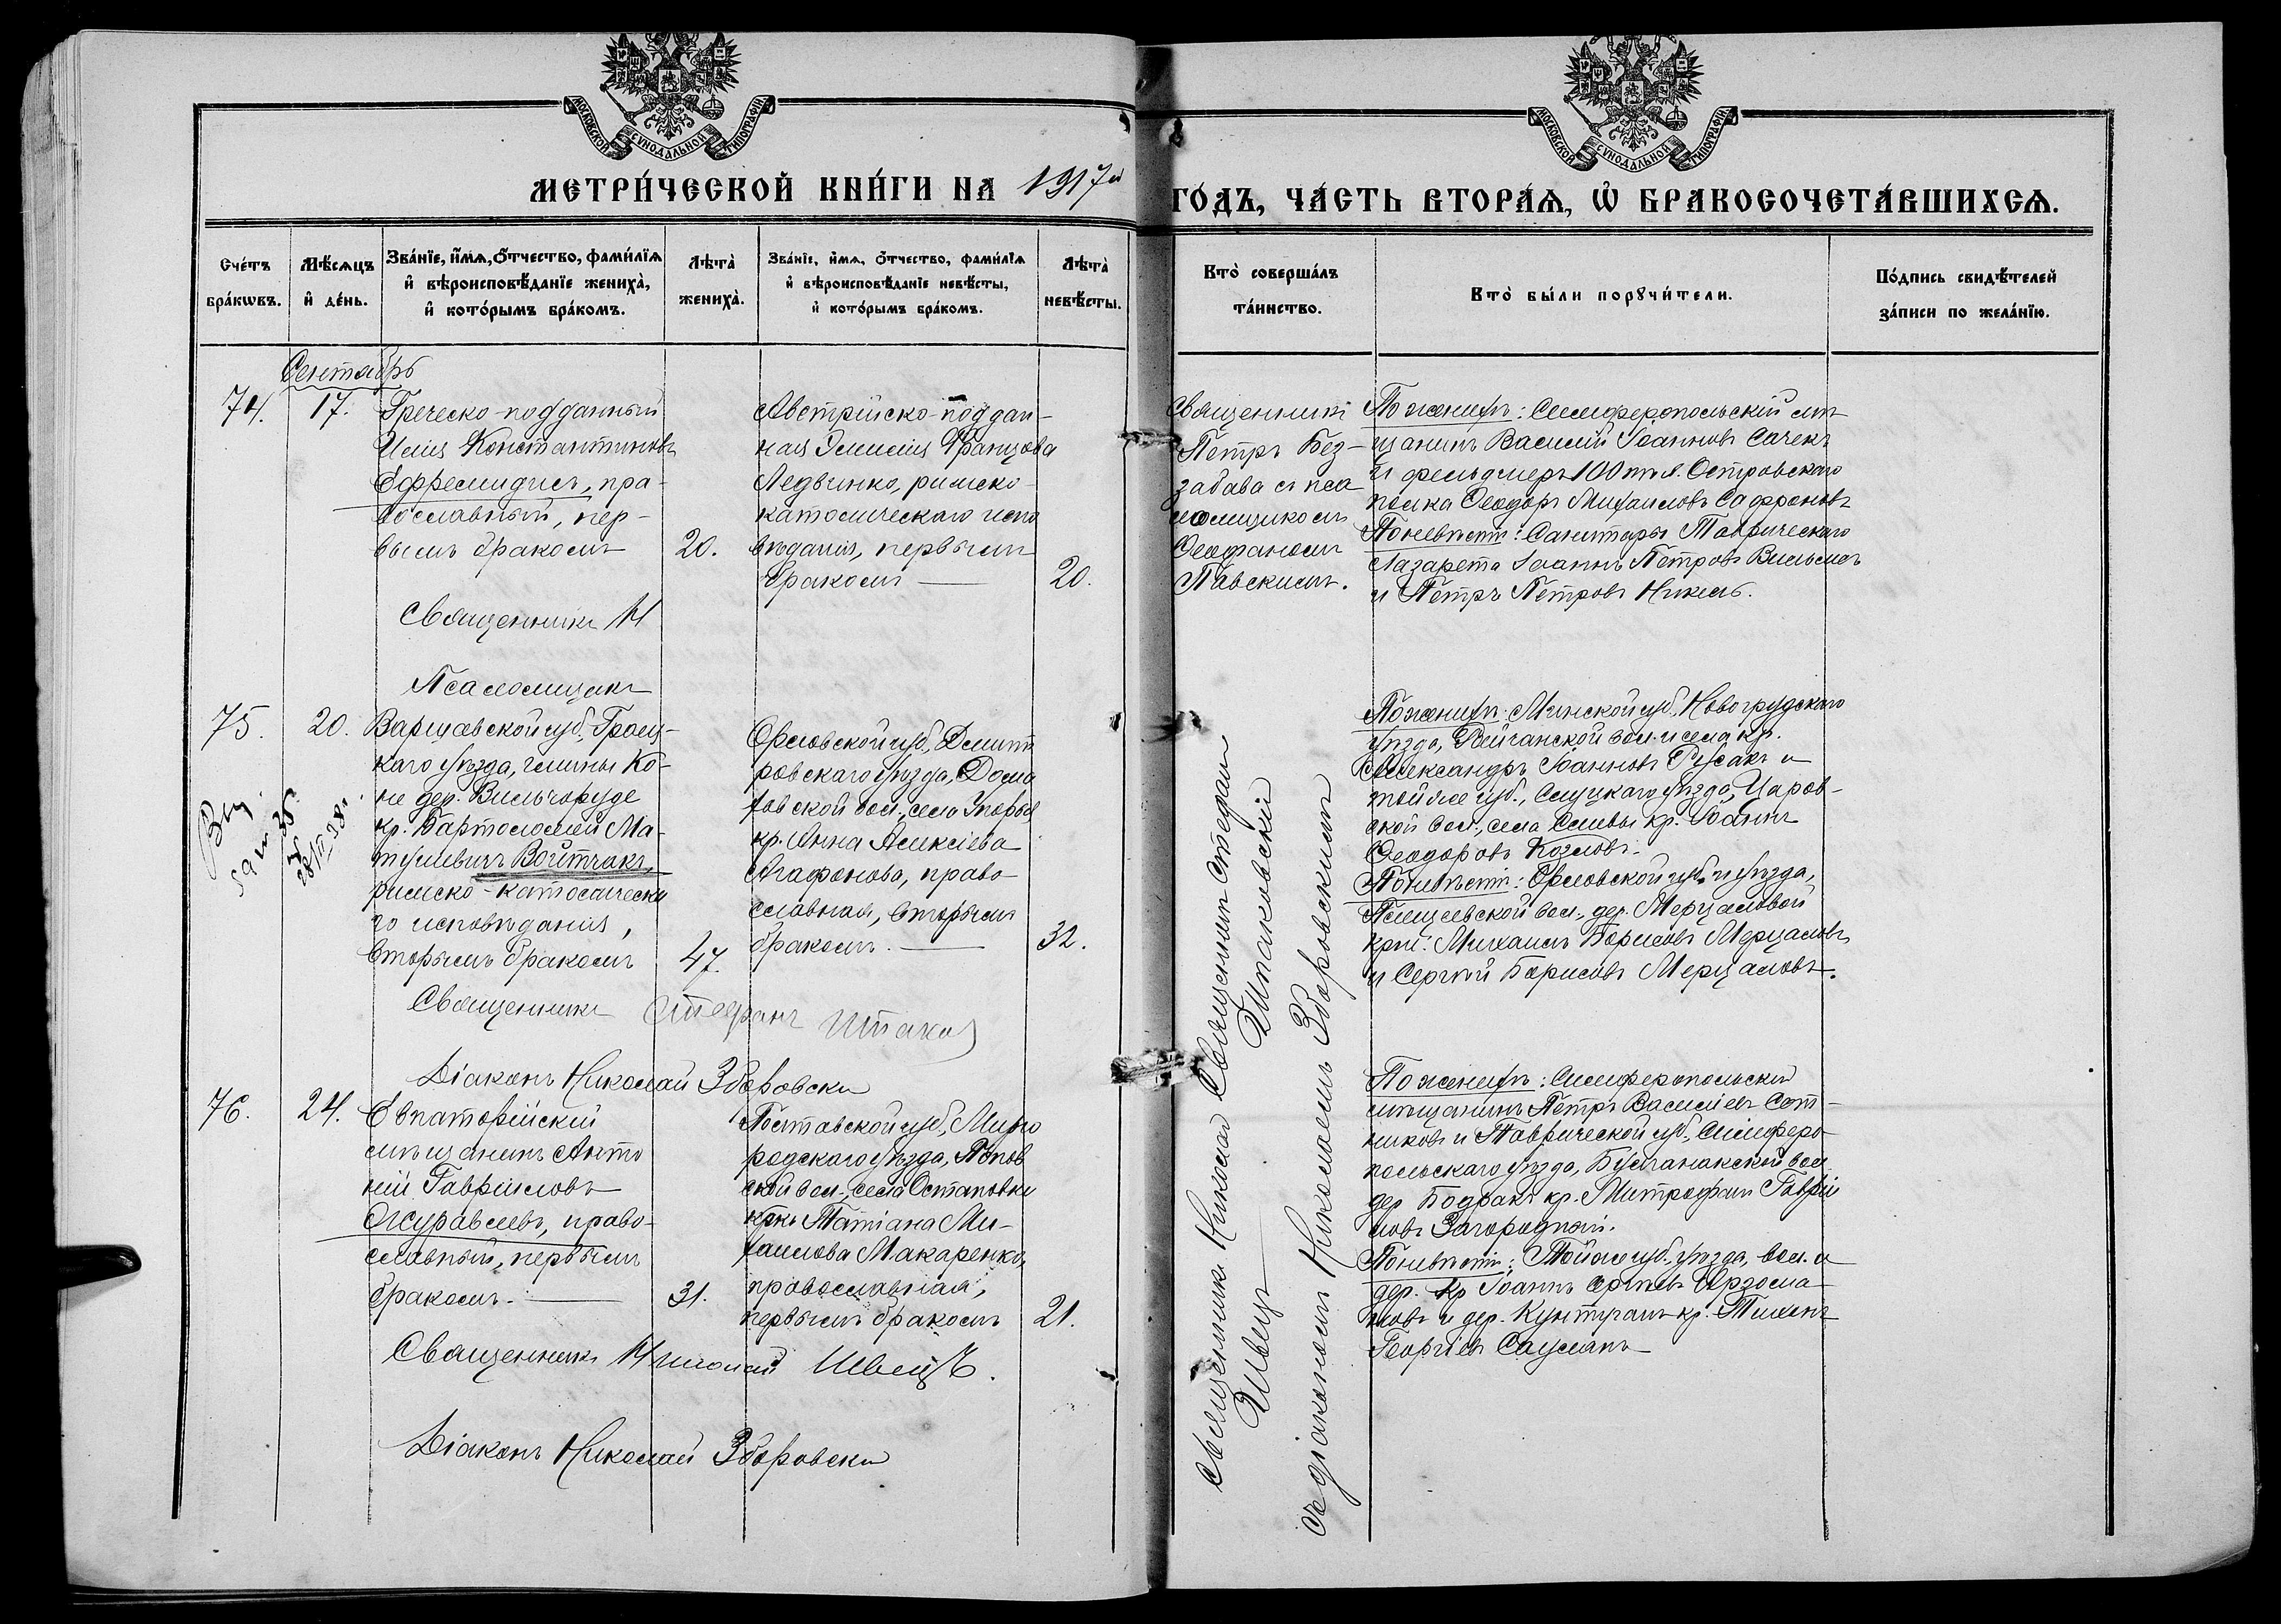 МОСКОВСКОЙ СѴНОДАЛЬНОЙ ТИПОГРАФІИ
МОСКОВСКОЙ СѴНОДАЛЬНОЙ ТИПОГРАФІИ
МЕТРИ́ЧЕСКОЙ КНИ́ГИ НА 1917й ГО́ДЪ, ЧА́СТЬ ВТОРА́Я, Ѡ҆ БРАКОСОЧЕТА́ВШИХСЯ.
Сче́тъ
бра́кѡвъ.
Мѣ́сяцъ
и҆ де́нь.
Зва́нїе, и҆́мя, ѻ҆́тчество, фами́лїя
и҆ вѣроисповѣ́данїе жениха̀,
и҆ кото́рымъ бра́комъ.
Лѣта̀
жениха̀.
Зва́нїе, и҆́мя, ѻ҆́тчество, фами́лїя
и҆ вѣроисповѣ́данїе невѣ́сты,
и҆ кото́рымъ бра́комъ.
Лѣта̀
невѣ́сты.
Кто̀ соверша́лъ
та́инство.
Кто̀ бы́ли порꙋчи́тели.
По́дпись свидѣ́телей
за́писи по жела́нїю.
Сентябрь
74.
17.
Греческо-подданный
Илія Константиновъ
Ефремидисъ, пра-
вославный, пер-
вымъ бракомъ
20.
Австрійско-поддан-
ная Эмилія Францова
Ледвинко, римско-
католическаго испо
вѣданія, первымъ
бракомъ —
20.
Священникъ
Петръ Без-
забава съ пса
ломщикомъ
Ѳеофаномъ
Павскимъ.
По женихѣ: Симферопольскій мѣ-
щанинъ Василій Іоанновъ Сачекъ
и фельдшеръ 100 Островскаго
полка Ѳеодоръ Михаиловъ Сафроновъ
По невѣстѣ: Санитары Таврическаго
Лазарета Іоаннъ Петровъ Вильмсъ
и Петръ Петровъ Никель.
Священникъ
Псаломщикъ
75.
20.
Варшавской губ., Гроец-
каго уѣзда, гмины Ко-
не дер. Вильчоруде
кр. Бартоломей Ма-
тушевичъ Войтчакъ,
римско-католическа
го исповѣданія,
вторымъ бракомъ
47.
Орловской губ., Дмит
ровскаго уѣзда, Дома
ховской вол., село Упорой
кр. Анна Алексіева
Агафонова, право-
славная, вторымъ
бракомъ. —
32.
По женихѣ: Минской губ., Новогрудскаго
уѣзда, вол. и села кр.
Александръ Іоанновъ Русакъ и
той же губ., Слуцкаго уѣзда, Царев-
ской вол., села кр. Іоаннъ
Ѳеодоровъ Козловъ.
По невѣстѣ: Орловской губ. и уѣзда,
Плещеевской вол., дер. Мерцаловой
крт. Михаилъ Борисовъ Мерцаловъ
и Сергѣй Борисовъ Мерцаловъ.
Священникъ Стефанъ
Діаконъ Николай Зборовски
76.
24.
Евпаторійскій
мѣщанинъ Анто
ній Гавріиловъ
Журавлевъ, право-
славный, первымъ
бракомъ. —
31.
Полтавской губ., Мирго
родскаго уѣзда, Попов
ской вол., села Остаповки
крнк. Татіана Ми-
хаилова Макаренко,
православная,
первымъ бракомъ
21.
Священникъ Николай
Швецъ
Священникъ Стефанъ
Шпаковскій
съ діакономъ Николаемъ Зборовскимъ
По женихѣ: Симферопольскій
мѣщанинъ Петръ Василіевъ Сот-
никовъ и Таврической губ., Симферо-
польскаго уѣзда, Булганакской вол.
дер. Бодракъ кр. Митрофанъ Гаврі
ловъ Загородный.
По невѣстѣ: Той же губ., уѣзда, вол. и
дер. кр Іоаннъ Арзома-
новъ и дер. кр. Тихонъ
Георгіевъ
Священникъ Николай Швецъ.
Діаконъ Николай Зборовски